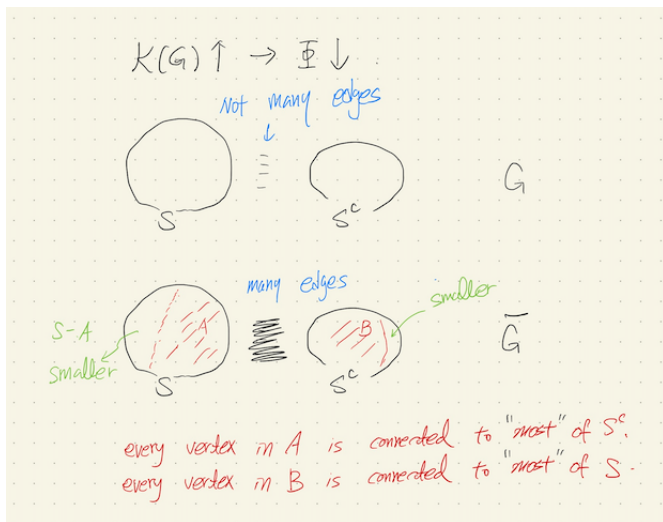 K(G) ↑ → Φ ↓
Not many edges
↓
S
S^c
G
many edges
smaller
S-A
smaller
A
B
S
S^c
G̅
every vertex in A is connected to "most" of S^c.
every vertex in B is connected to "most" of S.